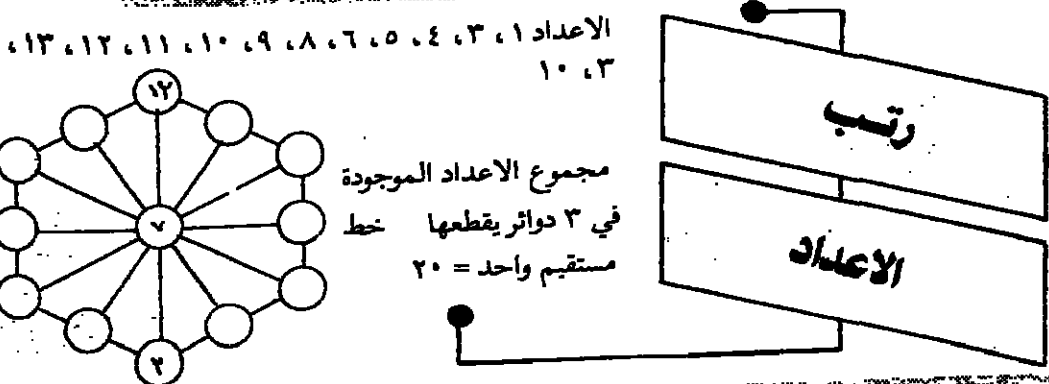 رتب
الاعداد
الاعداد ١ ، ٣ ، ٤ ، ٥ ، ٦ ، ٨ ، ٩ ، ١٠ ، ١١ ، ١٢ ، ١٣ ،
٣ ، ١٠
مجموع الاعداد الموجودة
في ٣ دوائر يقطعها خط
مستقيم واحد = ٢٠
١٢
٧